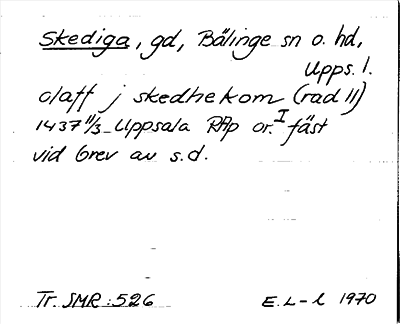 Skediga, gd, Bälinge sn o. hd,
Upps. l.
olaff j skedhekom (rad 11)
1437 11/3 Uppsala RAp or. I fäst
vid brev av s.d.
Tr. SMR: 526
E. L-l 1970